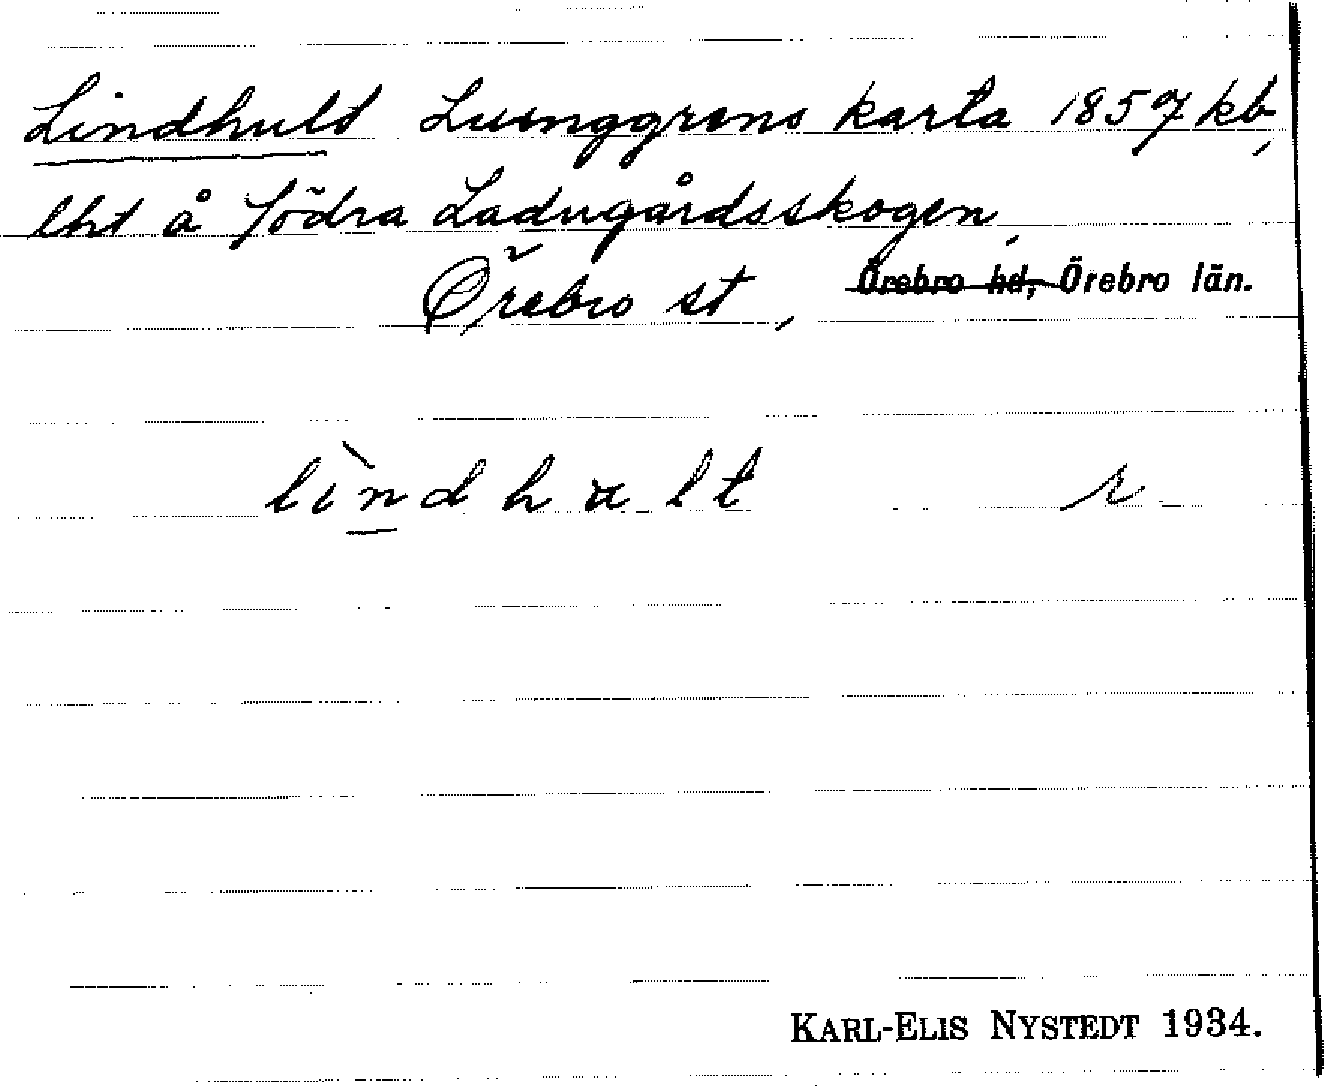 Lindhult Ljunggrens karta 1857 kb,
lht å Södra Ladugårdsskogen,
Örebro st, Örebro hd, Örebro län.
lìndhult r
KARL-ELIS NYSTEDT 1934.